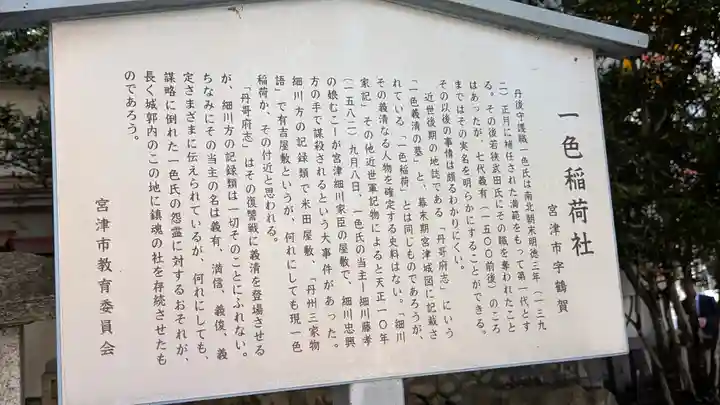 一色稲荷社
宮津市字鶴賀
丹後守護職一色氏は南北朝末明徳三年(一三九
二)正月に補任された満範をもって第一代とす
る。その後若狭武田氏にその職を奪われたこと
はあったが、七代義有(一五〇〇前後)のころ
まではその実名を明らかにすることができる。
その以後の事情は頗るわかりにくい。
近世後期の地誌である「丹哥府志」にいう
「一色義清の墓」と、幕末期宮津城図に記載さ
れている「一色稲荷」とは同じものであろうが、
その義清なる人物を確定する史料はない。「細川
家記」その他近世軍記物によると天正一〇年
(一五八二)九月八日、一色氏の当主―細川藤孝
の娘むこ―が宮津細川家臣の屋敷で、細川忠興
方の手で謀殺されるという大事件があった。
細川方の記録類で米田屋敷、「丹州三家物
語」で有吉屋敷というが、何れにしても現一色
稲荷か、その付近と思われる。
「丹哥府志」はその復讐戦に義清を登場させる
が、細川方の記録類は一切そのことにふれない。
ちなみにその当主の名は義有、満信、義俊、義
定さまざまに伝えられているが、何れにしても、
謀略に倒れた一色氏の怨霊に対するおそれが、
長く城郭内のこの地に鎮魂の社を存続させたも
のであろう。
宮津市教育委員会